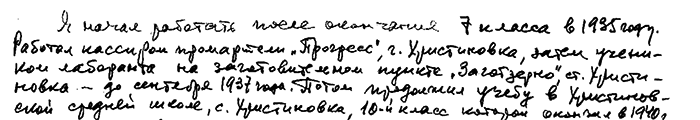 Я начал работать после окончания 7 класса в 1935 году.
Работал кассиром промартели „Прогресс", г. Христиновка, затем учени-
ком лаборанта на заготовительном пункте „Заготзерно", ст. Христи-
новка – до сентября 1937 года. Потом продолжил учебу в Христинов-
ской средней школе, с. Христиновка, 10-й класс которой окончил в 1940 г